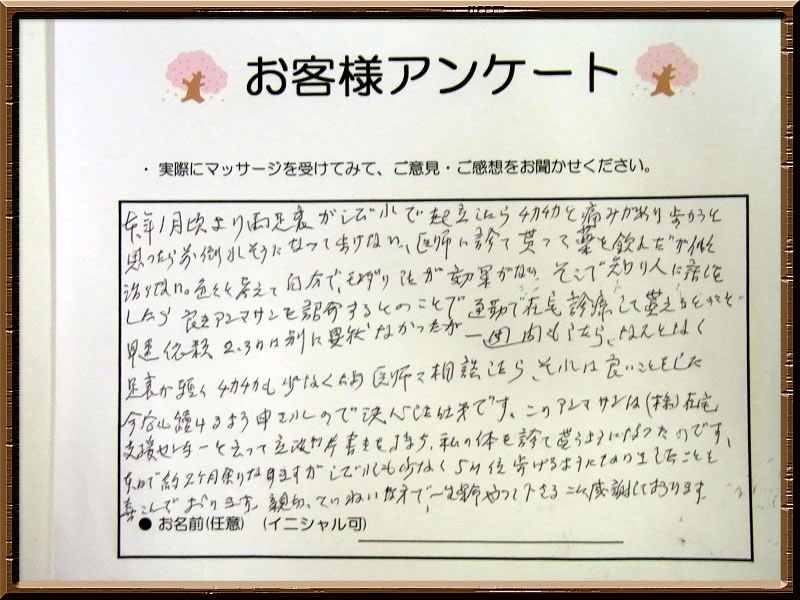 お客様アンケート
・ 実際にマッサージを受けてみて、ご意見・ご感想をお聞かせください。
本年1月頃より両足裏がしびれて起立したらチカチカと痛みがあり歩かうと
思ったら前に倒れそうになって歩けない、医師に診て貰って薬を飲んだが
治りない。色々と考えて自分で、もが効果がない。そこで知り人に話を
したら良きアンマサンを紹介するとのことで通勤で在宅診療して貰えるとのこと
早速依頼 2.3日は別に異状なかったが一週間もしたら、なんとなく
足裏が軽くチカチカも少なくなり医師に相談したら、それは良いことをした
今后も続けるよう申されるので決心した仕末です、このアンマサンは(株)在宅
支援センターと云って立派な片書きをもち、私の体を診て貰うようになったのです、
約2ケ月余りなりますがしびれも少なく5M位歩けるようになりましたことを
喜こんでおります。親切、ていねいな方で、一生懸命やって下さることに感謝しております
● お名前(任意) (イニシャル可)